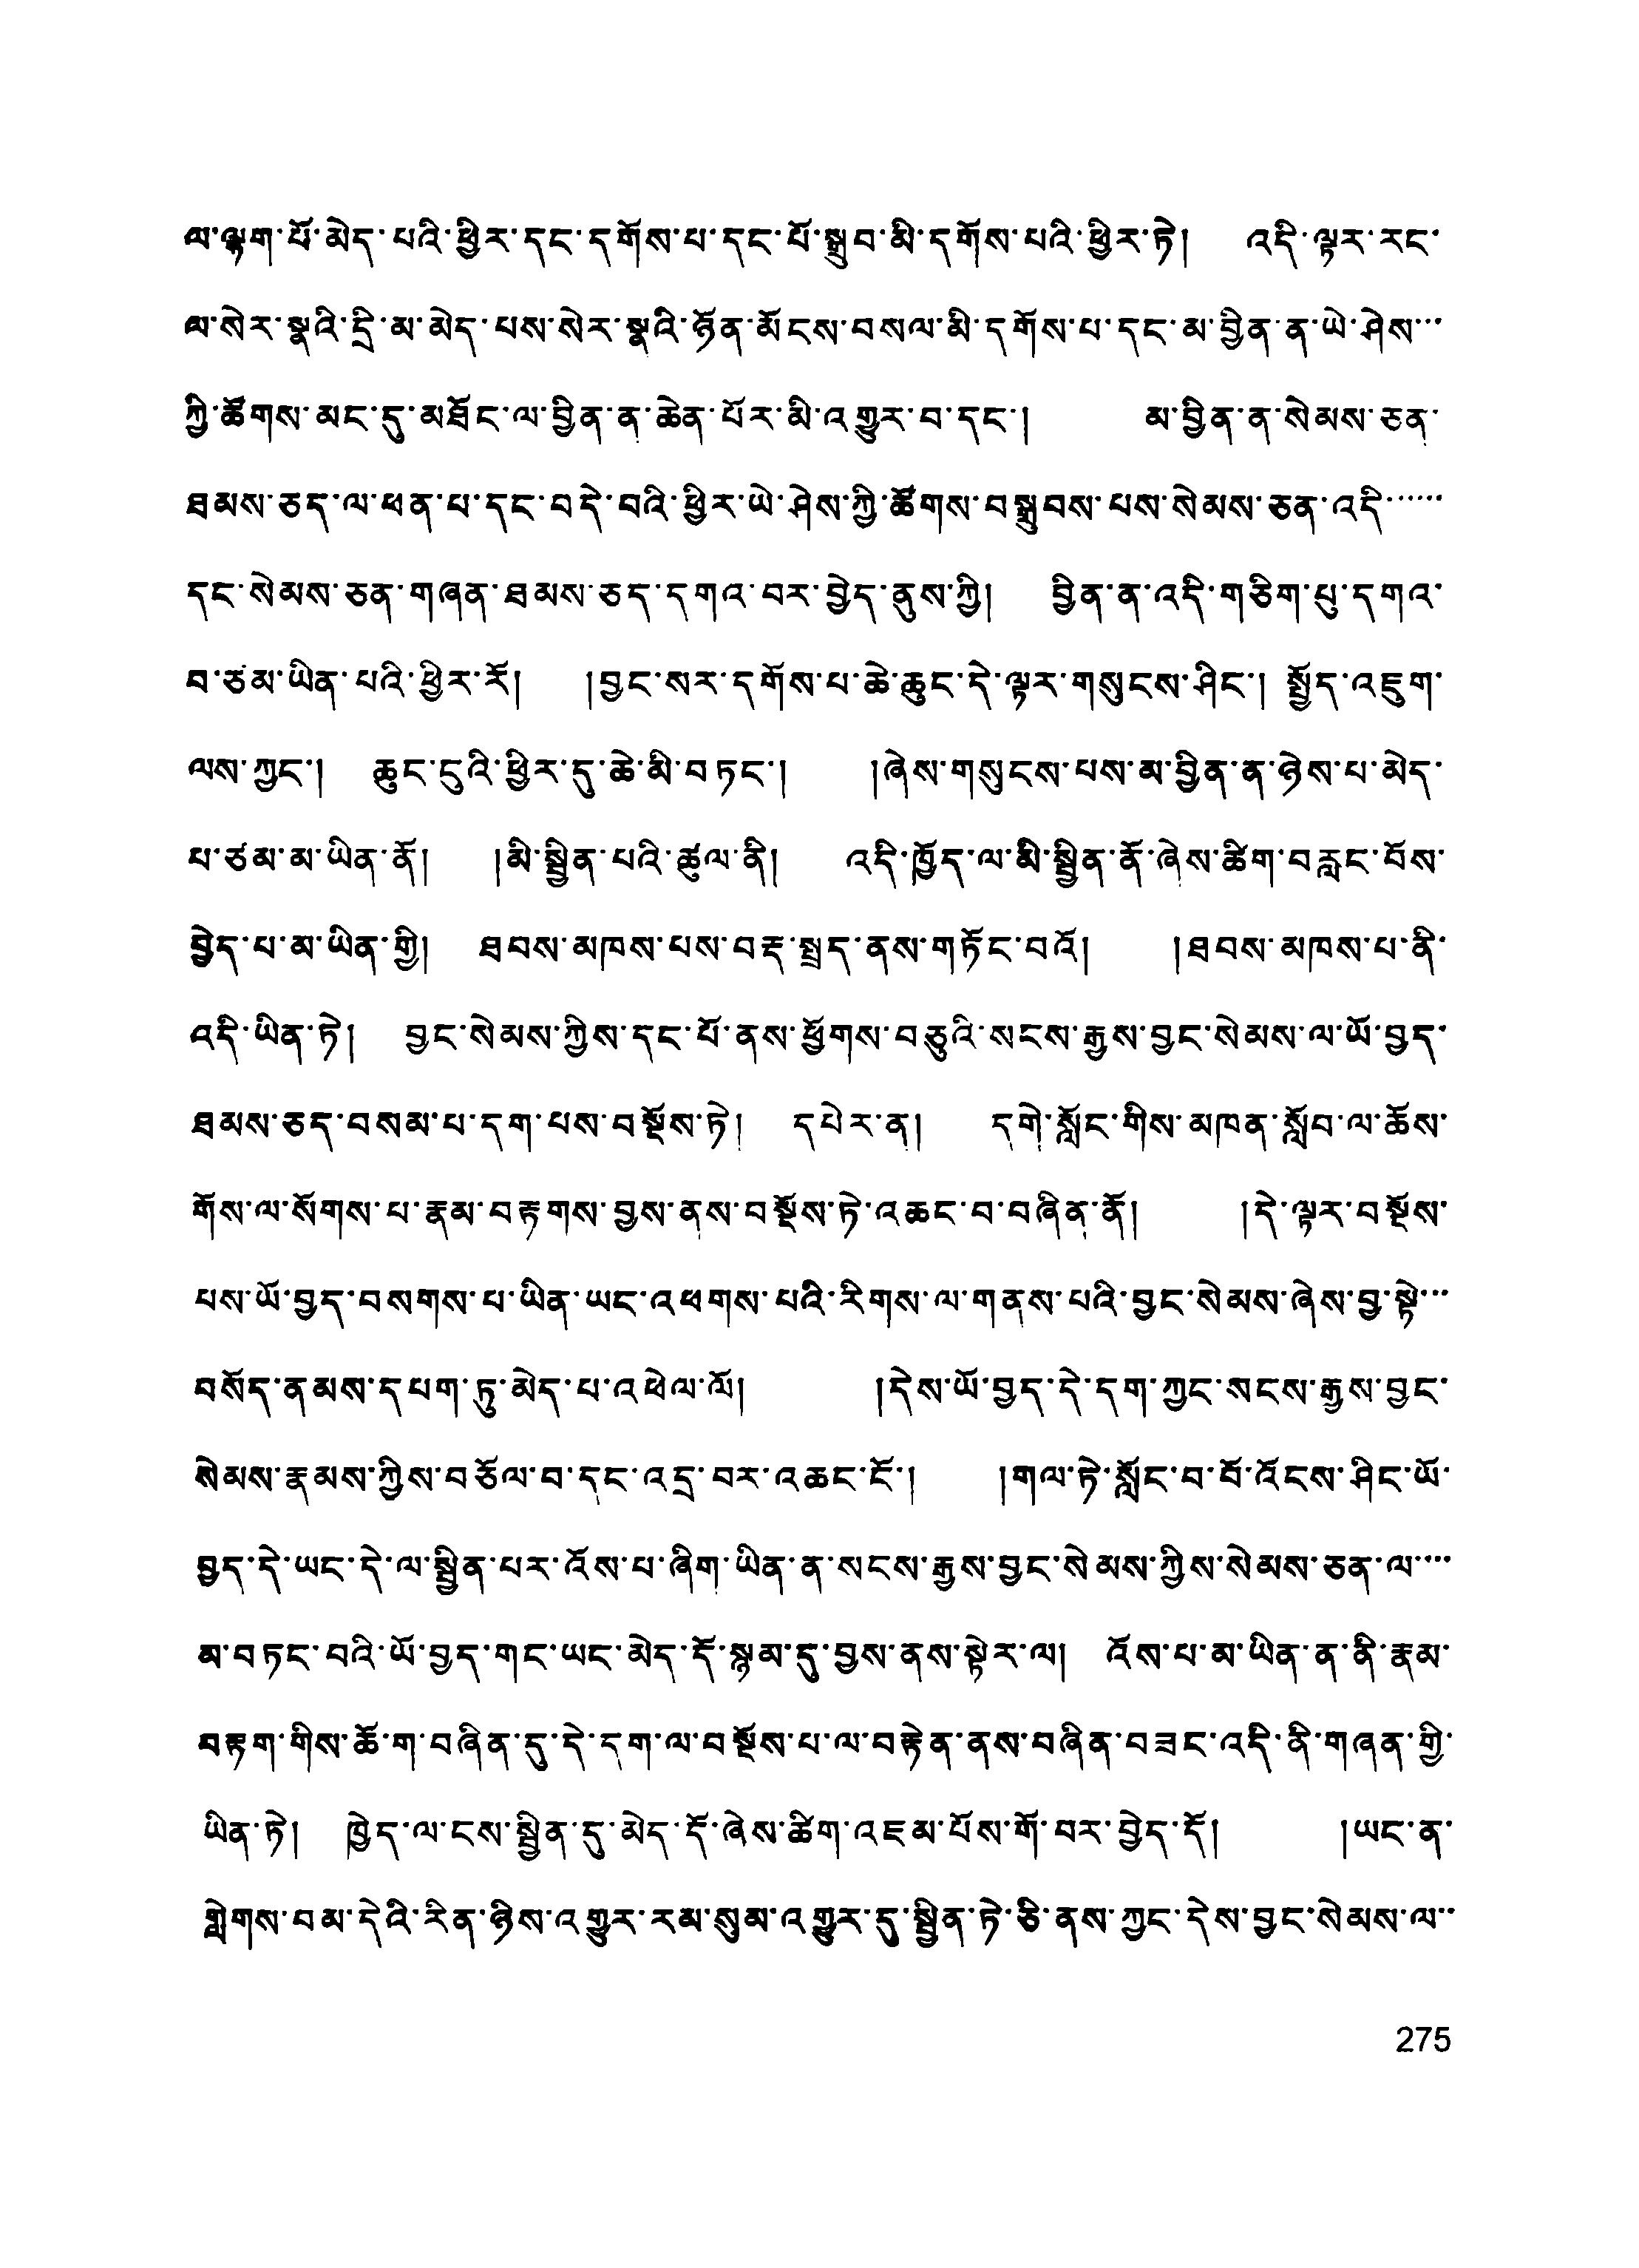 ལ་ལྷག་པོ་མེད་པའི་ཕྱིར་དང་དགོས་པ་དང་པོ་སྒྲུབ་མི་དགོས་པའི་ཕྱིར་ཏེ། འདི་ལྟར་རང་
ལ་སེར་སྣའི་དྲི་མ་མེད་པས་སེར་སྣའི་ཉོན་མོངས་བསལ་མི་དགོས་པ་དང་མ་བྱིན་ན་ཡེ་ཤེས་་་
ཀྱི་ཚོགས་མང་དུ་མཐོང་ལ་བྱིན་ན་ཆེན་པོར་མི་འགྱུར་བ་དང་། མ་བྱིན་ན་སེམས་ཅན་
ཐམས་ཅད་ལ་ཕན་པ་དང་བདེ་བའི་ཕྱིར་ཡེ་ཤེས་ཀྱི་ཚོགས་བསྒྲུབས་པས་སེམས་ཅན་འདི་་་་་་
དང་སེམས་ཅན་གཞན་ཐམས་ཅད་དགའ་བར་བྱེད་ནུས་ཀྱི། བྱིན་ན་འདི་གཅིག་པུ་དགའ་
བ་ཙམ་ཡིན་པའི་ཕྱིར་རོ། །བྱང་སར་དགོས་པ་ཆེ་ཆུང་དེ་ལྟར་གསུངས་ཤིང་། སྤྱོད་འཇུག་
ལས་ཀྱང་། ཆུང་ངུའི་ཕྱིར་དུ་ཆེ་མི་བཏང་། །ཞེས་གསུངས་པས་མ་བྱིན་ན་ཉེས་པ་མེད་
པ་ཙམ་མ་ཡིན་ནོ། །མི་སྦྱིན་པའི་ཚུལ་ནི། འདི་ཁྱོད་ལ་མི་སྦྱིན་ནོ་ཞེས་ཚིག་བརླང་པོས་
བྱེད་པ་མ་ཡིན་གྱི། ཐབས་མཁས་པས་བརྡ་སྤྲད་ནས་གཏོང་བའོ། །ཐབས་མཁས་པ་ནི་
འདི་ཡིན་ཏེ། བྱང་སེམས་ཀྱིས་དང་པོ་ནས་ཕྱོགས་བཅུའི་སངས་རྒྱས་བྱང་སེམས་ལ་ཡོ་བྱད་
ཐམས་ཅད་བསམ་པ་དག་པས་བསྔོས་ཏེ། དཔེར་ན། དགེ་སློང་གིས་མཁན་སློབ་ལ་ཆོས་
གོས་ལ་སོགས་པ་རྣམ་བརྟགས་བྱས་ནས་བསྔོས་ཏེ་འཆང་བ་བཞིན་ནོ། །དེ་ལྟར་བསྔོས་
པས་ཡོ་བྱད་བསགས་པ་ཡིན་ཡང་འཕགས་པའི་རིགས་ལ་གནས་པའི་བྱང་སེམས་ཞེས་བྱ་སྟེ་་་
བསོད་ནམས་དཔག་ཏུ་མེད་པ་འཕེལ་ལོ། །དེས་ཡོ་བྱད་དེ་དག་ཀྱང་སངས་རྒྱས་བྱང་
སེམས་རྣམས་ཀྱིས་བཅོལ་བ་དང་འདྲ་བར་འཆང་ངོ་། །གལ་ཏེ་སློང་བ་པོ་འོངས་ཤིང་ཡོ་
བྱད་དེ་ཡང་དེ་ལ་སྦྱིན་པར་འོས་པ་ཞིག་ཡིན་ན་སངས་རྒྱས་བྱང་སེམས་ཀྱིས་སེམས་ཅན་ལ་་་་
མ་བཏང་བའི་ཡོ་བྱད་གང་ཡང་མེད་དོ་སྙམ་དུ་བྱས་ནས་སྟེར་ལ། འོས་པ་མ་ཡིན་ན་ནི་རྣམ་
བརྟག་གིས་ཆོ་ག་བཞིན་དུ་དེ་དག་ལ་བསྔོས་པ་ལ་བརྟེན་ནས་བཞིན་བཟང་འདི་ནི་གཞན་གྱི་
ཡིན་ཏེ། ཁྱེད་ལ་ངས་སྦྱིན་དུ་མེད་དོ་ཞེས་ཚིག་འཇམ་པོས་གོ་བར་བྱེད་དོ། །ཡང་ན་
གླེགས་བམ་དེའི་རིན་ཉིས་འགྱུར་རམ་སུམ་འགྱུར་དུ་སྦྱིན་ཏེ་ཅི་ནས་ཀྱང་དེས་བྱང་སེམས་ལ་་
275